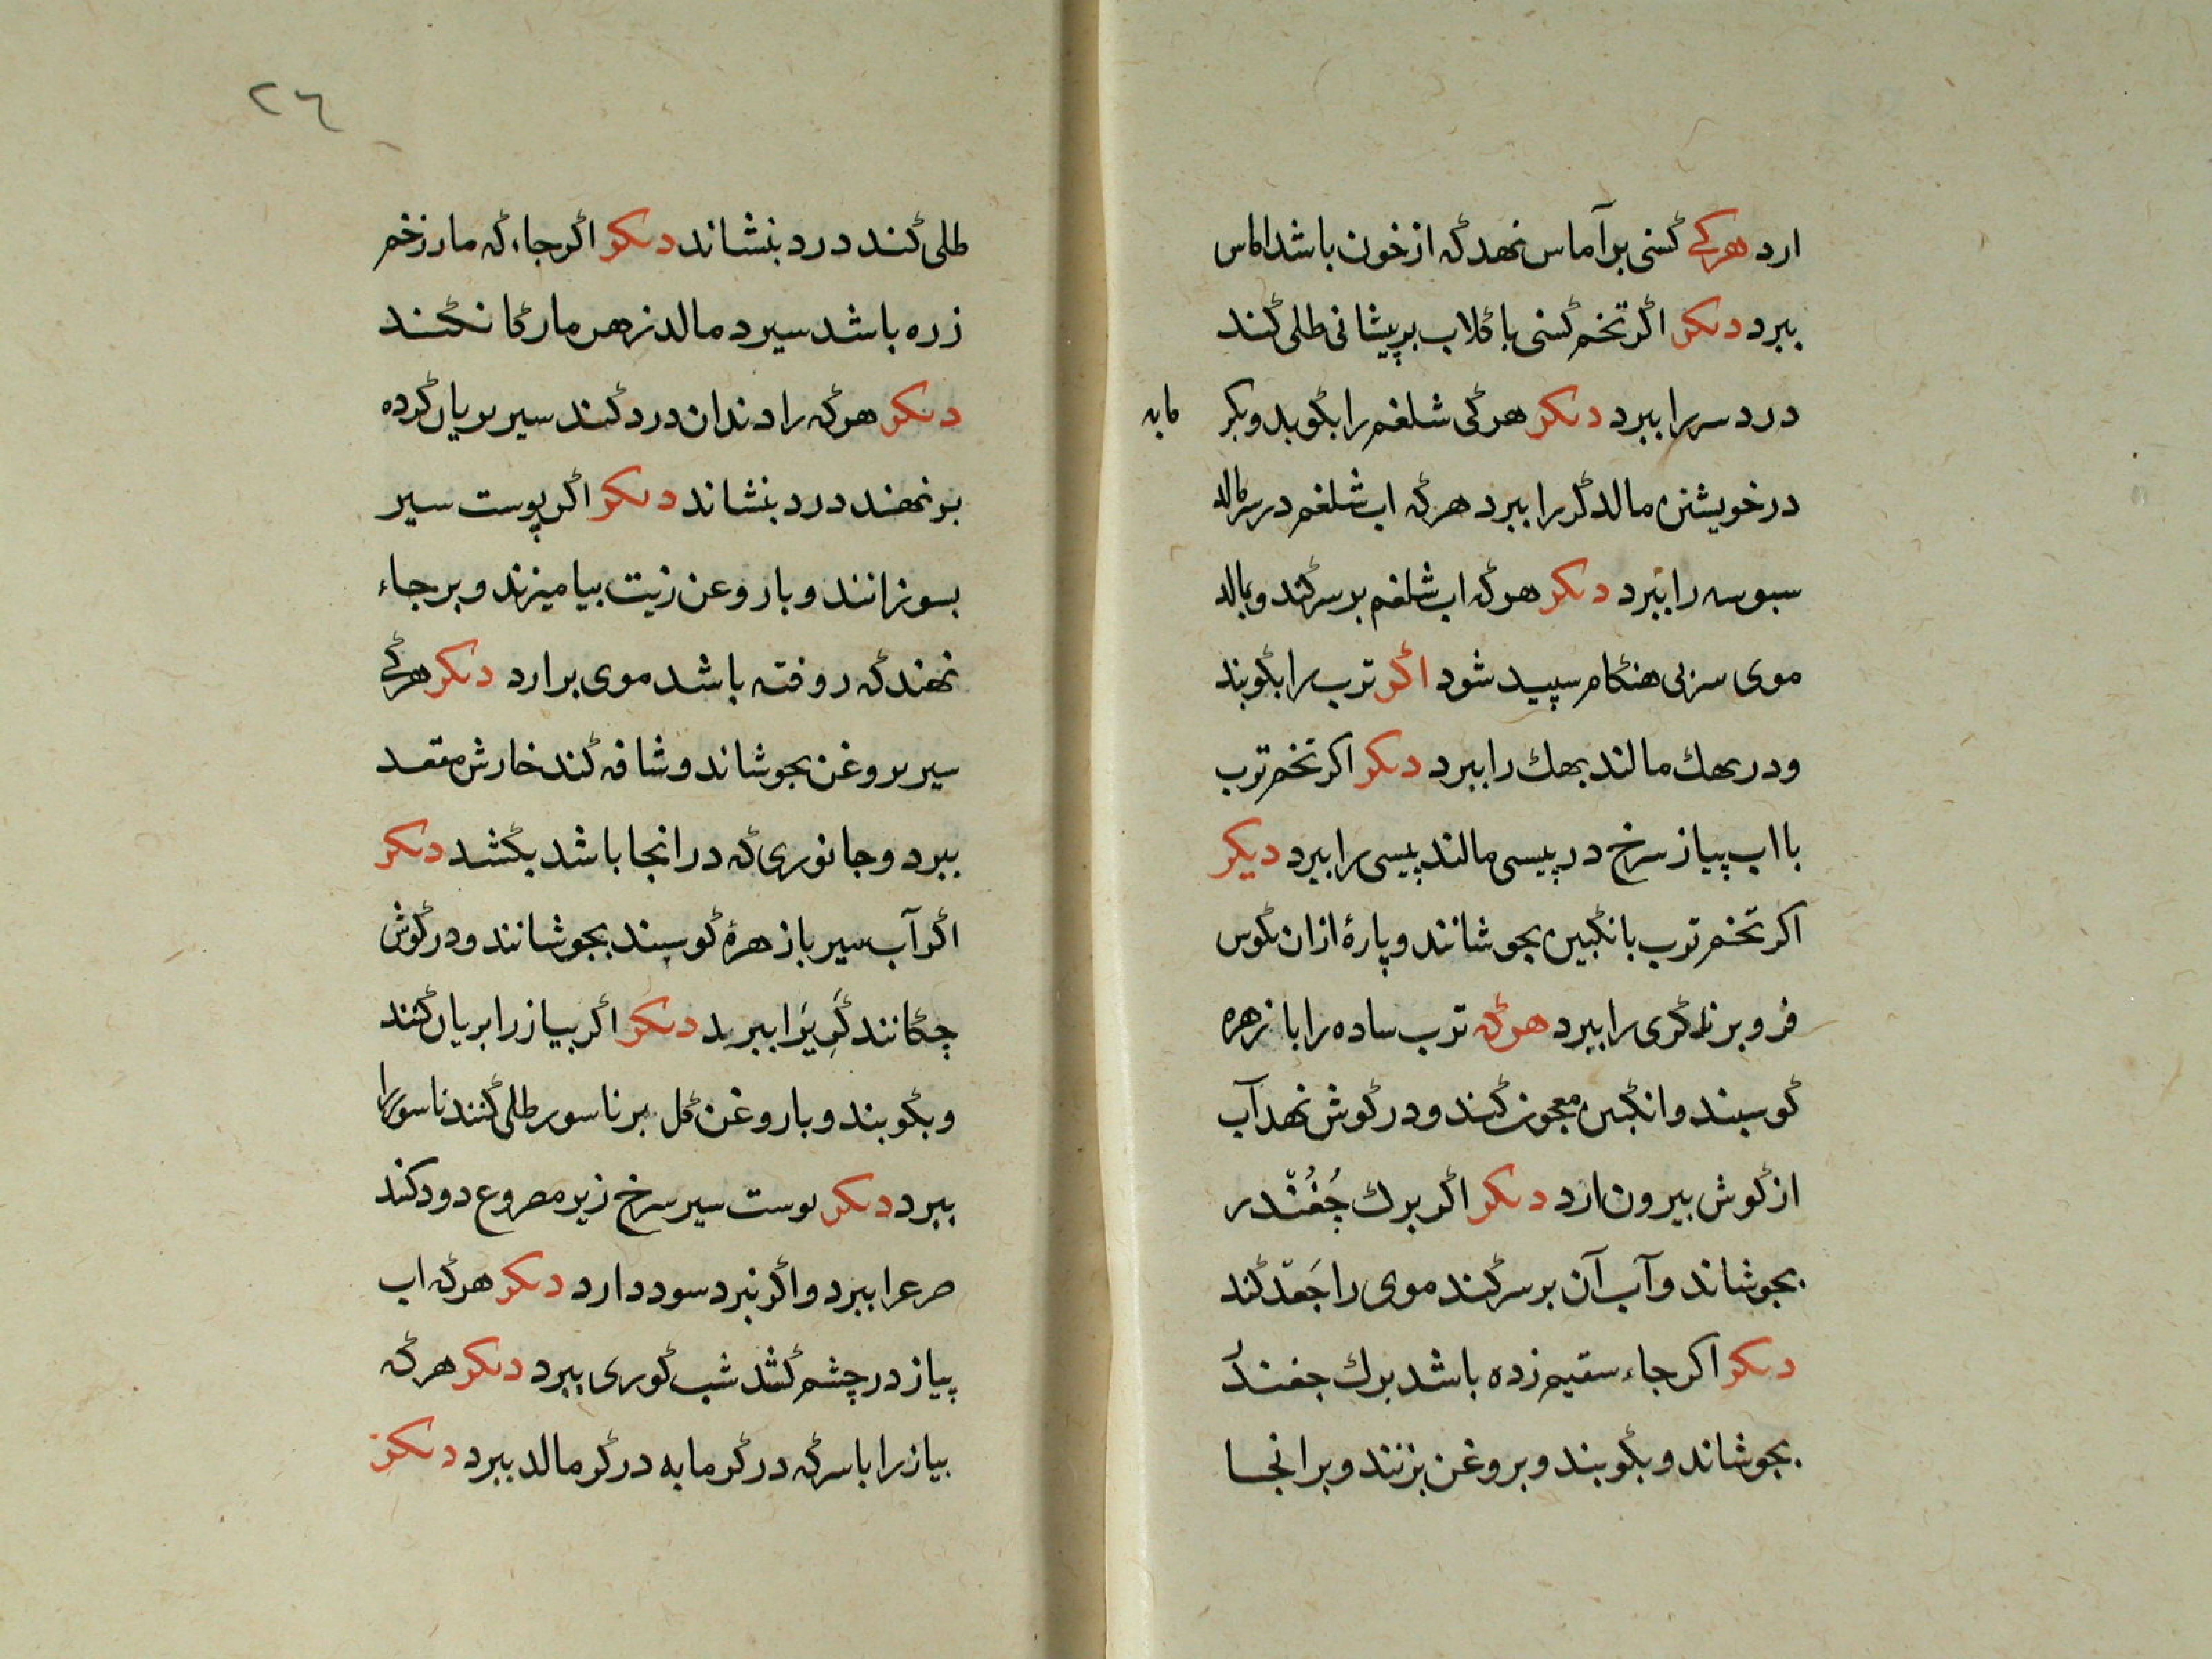 ارد هرکی کسنی بر آماس نهد که از خون باشد اماس
ببرد دیکر اکر تخم کسنی با کلاب بر پیشانی طلی کند
درد سر را ببرد دیکر هر کی شلغم را بکوبد و بکر مابه
در خویشتن مالد کر را ببرد هر که اب شلغم در سر مالد
سبوسه را ببرد دیکر هر که اب شلغم بر سر کند و بمالد
موی سر بی هنکام سپید شود اکر ترب را بکوبند
و در بهك مالند بهك را ببرد دیکر اکر تخم ترب
با اب پیاز سرخ در پیسی مالند پیسی را ببرد دیکر
اکر تخم ترب بانکبین بجوشانند و پارهٔ ازان بکوش
فرو برند کری را ببرد هر که ترب ساده را با زهره
کوسبند و انکبین معجون کند و در کوش نهد آب
از کوش بیرون ارد دیکر اکر برك چُغُنْدر
بجوشاند و آب آن بر سر کند موی را جَعد کند
دیکر اکر جاء سقیم زده باشد برك جغندُ
بجوشاند و بکوبند و بروغن بزنند و بر انجا
٢٦
طلی کند درد بنشاند دیکر اکر جاء که مار زخم
زره باشد سیر د مالد زهر مار کا نکند
دیکر هر که را دندان درد کند سیر بریان کرده
بر نهند درد بنشاند دیکر اکر پوست سیر
بسوزانند و با روغن زیت بیامیزند و بر جاء
نهند که روفته باشد موی برارد دیکر هرکی
سیر بروغن بجوشاند و شافه کند خارش مقعد
ببرد و جانوری که در انجا باشد بکشد دیکر
اکر آب سیر با زهرهٔ کوسپند بجوشانند و در کوش
چکانند کریرا ببرد دیکر اکر بیاز را بریان کنند
و بکوبند و با روغن کل بر ناسور طلی کنند ناسور را
ببرد دیکر بوست سیر سرخ زیر مصروع دود کند
صرعرا ببرد و اکر نبرد سود دارد دیکر هر که اب
پیاز در چشم کشد شب کوری ببرد دیکر هر که
بیاز را با سرکه در کرمابه در کر مالد ببرد دیکر